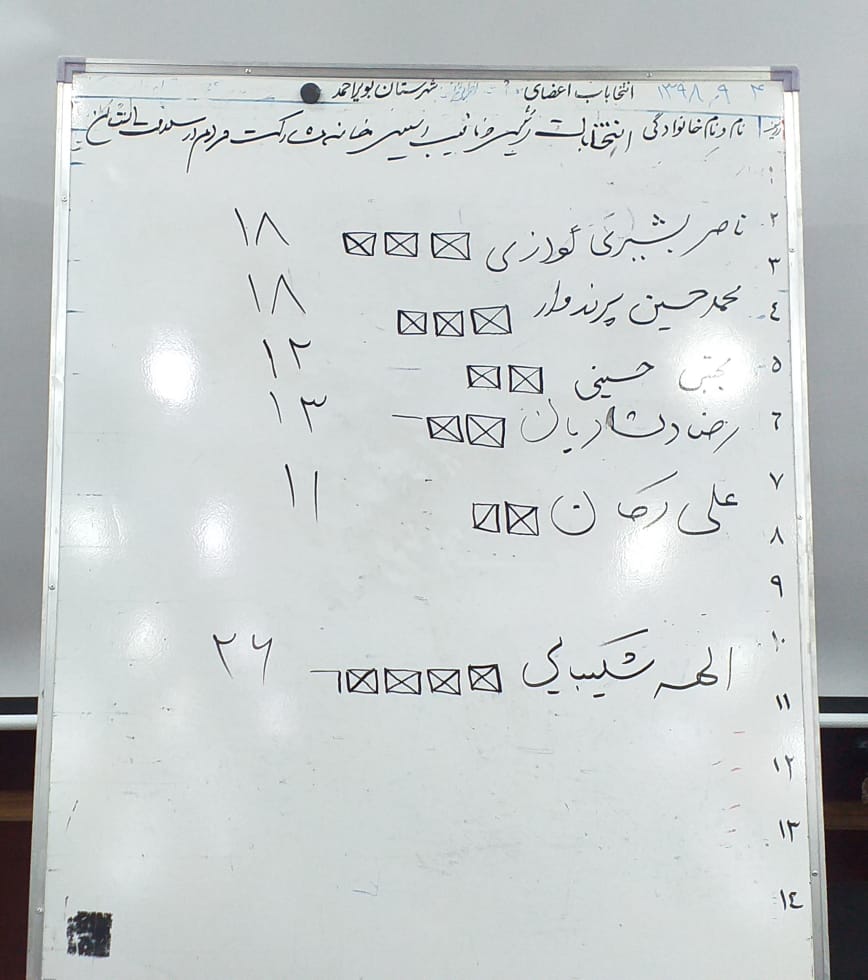 ۱۳۹۸ ٫۹ ۴ انتخابات اعضای شهرستان بویراحمد
ردیف نام و نام خانوادگی انتخابات رئیس و نایب رئیس خانه مشارکت مردم در سلامت استان
۱
۲ ناصر بشیری گوازی ۱۸
۳
٤ محمد حسین پرندوار ۱۸
۵ مجتبی حسینی ۱۲
٦ رضا دشتاریان ۱۳
۷ علی رکان ۱۱
۸
۹
۱۰ الهه شکیبایی ۲۶
۱۱
۱۲
۱۳
۱٤